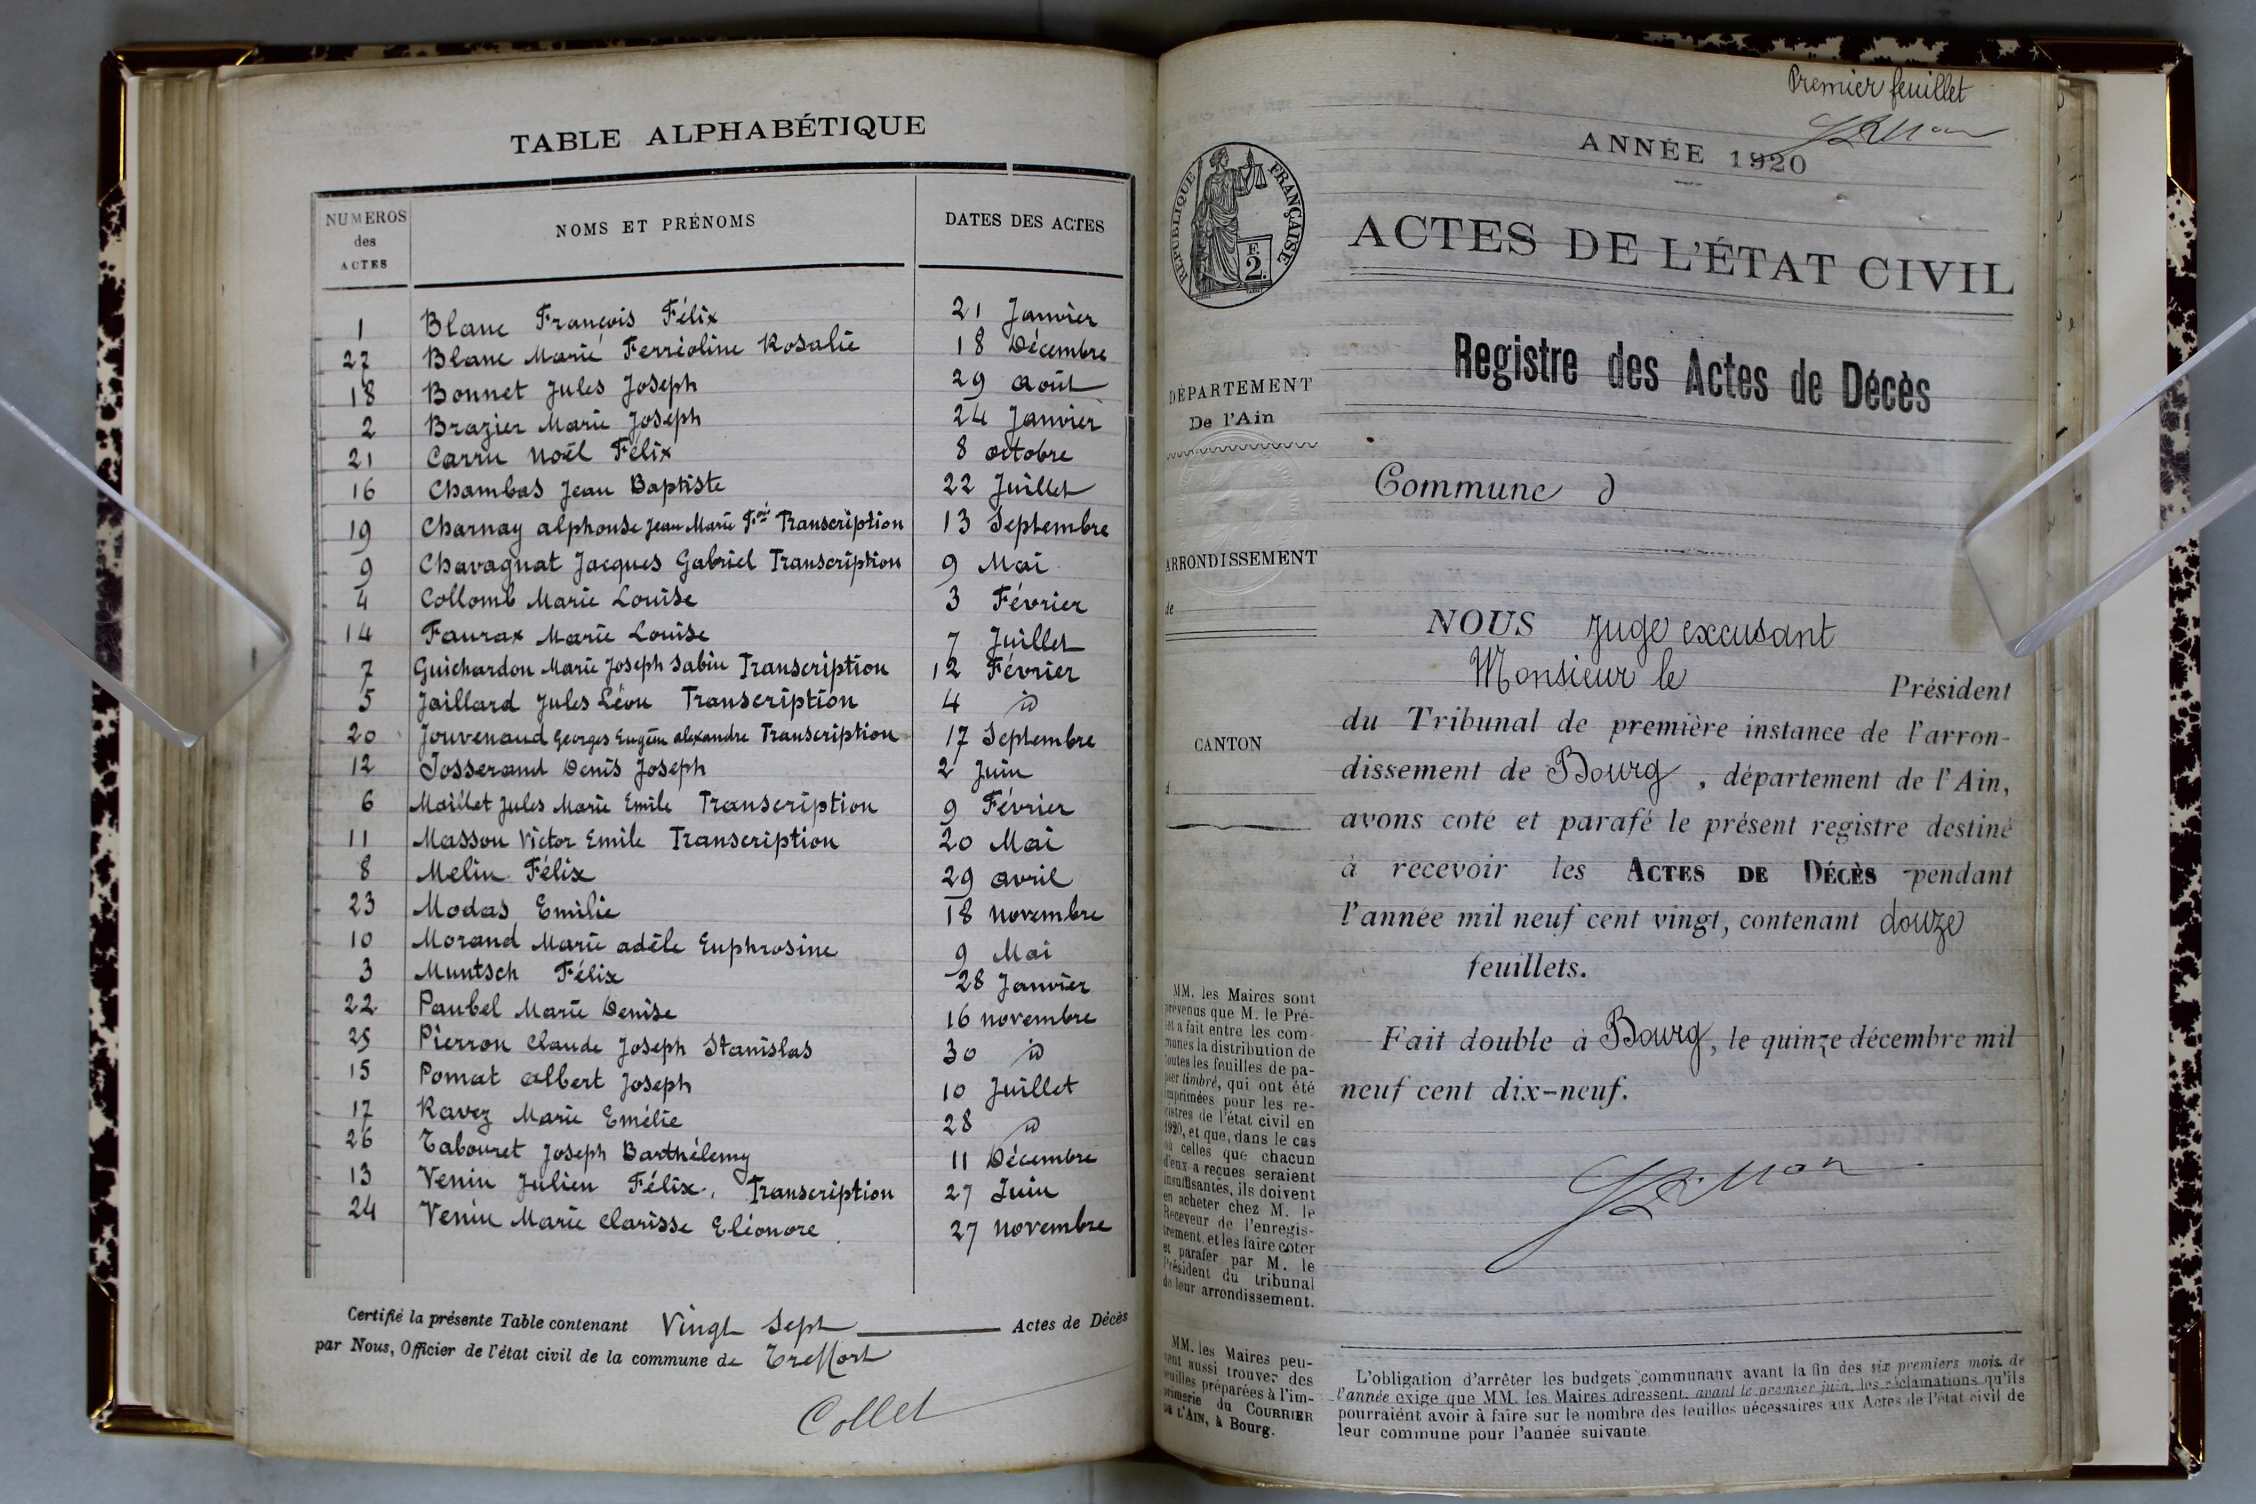 TABLE ALPHABÉTIQUE
NUMEROS des ACTES
NOMS ET PRÉNOMS
DATES DES ACTES
1 Blanc François Félix 21 Janvier
27 Blanc Marie Ferréoline Rosalie 18 Décembre
18 Bonnet Jules Joseph 29 août
2 Brazier Marie Joseph 24 Janvier
21 Carru Noël Félix 8 octobre
16 Chambas Jean Baptiste 22 Juillet
19 Charnay alphonse Jean Marie Transcription 13 Septembre
9 Chavagnat Jacques Gabriel Transcription 9 Mai
4 Collomb Marie Louise 3 Février
14 Faurax Marie Louise 7 Juillet
7 Guichardon Marie Joseph Sabin Transcription 12 Février
5 Jaillard Jules Léon Transcription 4 id
20 Jouvenaud Georges Eugène alexandre Transcription 17 Septembre
12 Josserand Denis Joseph 2 Juin
6 Maillet Jules Marie Emile Transcription 9 Février
11 Masson Victor Emile Transcription 20 Mai
8 Melin Félix 29 avril
23 Modas Emilie 18 novembre
10 Morand Marie adèle Euphrosine 9 Mai
3 Muntsch Félix 28 Janvier
22 Paubel Marie Denise 16 novembre
25 Pierron Claude Joseph Stanislas 30 id
15 Pomat albert Joseph 10 Juillet
17 Ravez Marie Emélie 28 id
26 Tabouret Joseph Barthélemy 11 Décembre
13 Venin Julien Félix, Transcription 27 Juin
24 Venin Marie Clarisse Eléonore 27 novembre
Certifié la présente Table contenant Vingt Sept Actes de Décès
par Nous, Officier de l'état civil de la commune de Treffort
Collet
Premier feuillet
ANNÉE 1920
RÉPUBLIQUE FRANÇAISE
E 2.
ACTES DE L'ÉTAT CIVIL
Registre des Actes de Décès
DÉPARTEMENT
De l'Ain
Commune d
ARRONDISSEMENT
de
NOUS Juge excusant
Monsieur le Président
du Tribunal de première instance de l'arron-
CANTON
dissement de Bourg, département de l'Ain,
d
avons coté et parafé le présent registre destiné
à recevoir les ACTES DE DÉCÈS pendant
l'année mil neuf cent vingt, contenant douze
feuillets.
Fait double à Bourg, le quinze décembre mil
neuf cent dix-neuf.
MM. les Maires sont
prévenus que M. le Pré-
fet a fait entre les com-
munes la distribution de
toutes les feuilles de pa-
pier timbré, qui ont été
imprimées pour les re-
gistres de l'état civil en
1920, et que, dans le cas
où celles que chacun
d'eux a reçues seraient
insuffisantes, ils doivent
en acheter chez M. le
Receveur de l'enregis-
trement, et les faire coter
et parafer par M. le
Président du tribunal
de leur arrondissement.
MM. les Maires peu-
vent aussi trouver des
feuilles préparées à l'im-
primerie du COURRIER
DE L'AIN, à Bourg.
L'obligation d'arrêter les budgets communaux avant la fin des six premiers mois de
l'année exige que MM. les Maires adressent, avant le premier juin, les réclamations qu'ils
pourraient avoir à faire sur le nombre des feuilles nécessaires aux Actes de l'état civil de
leur commune pour l'année suivante.